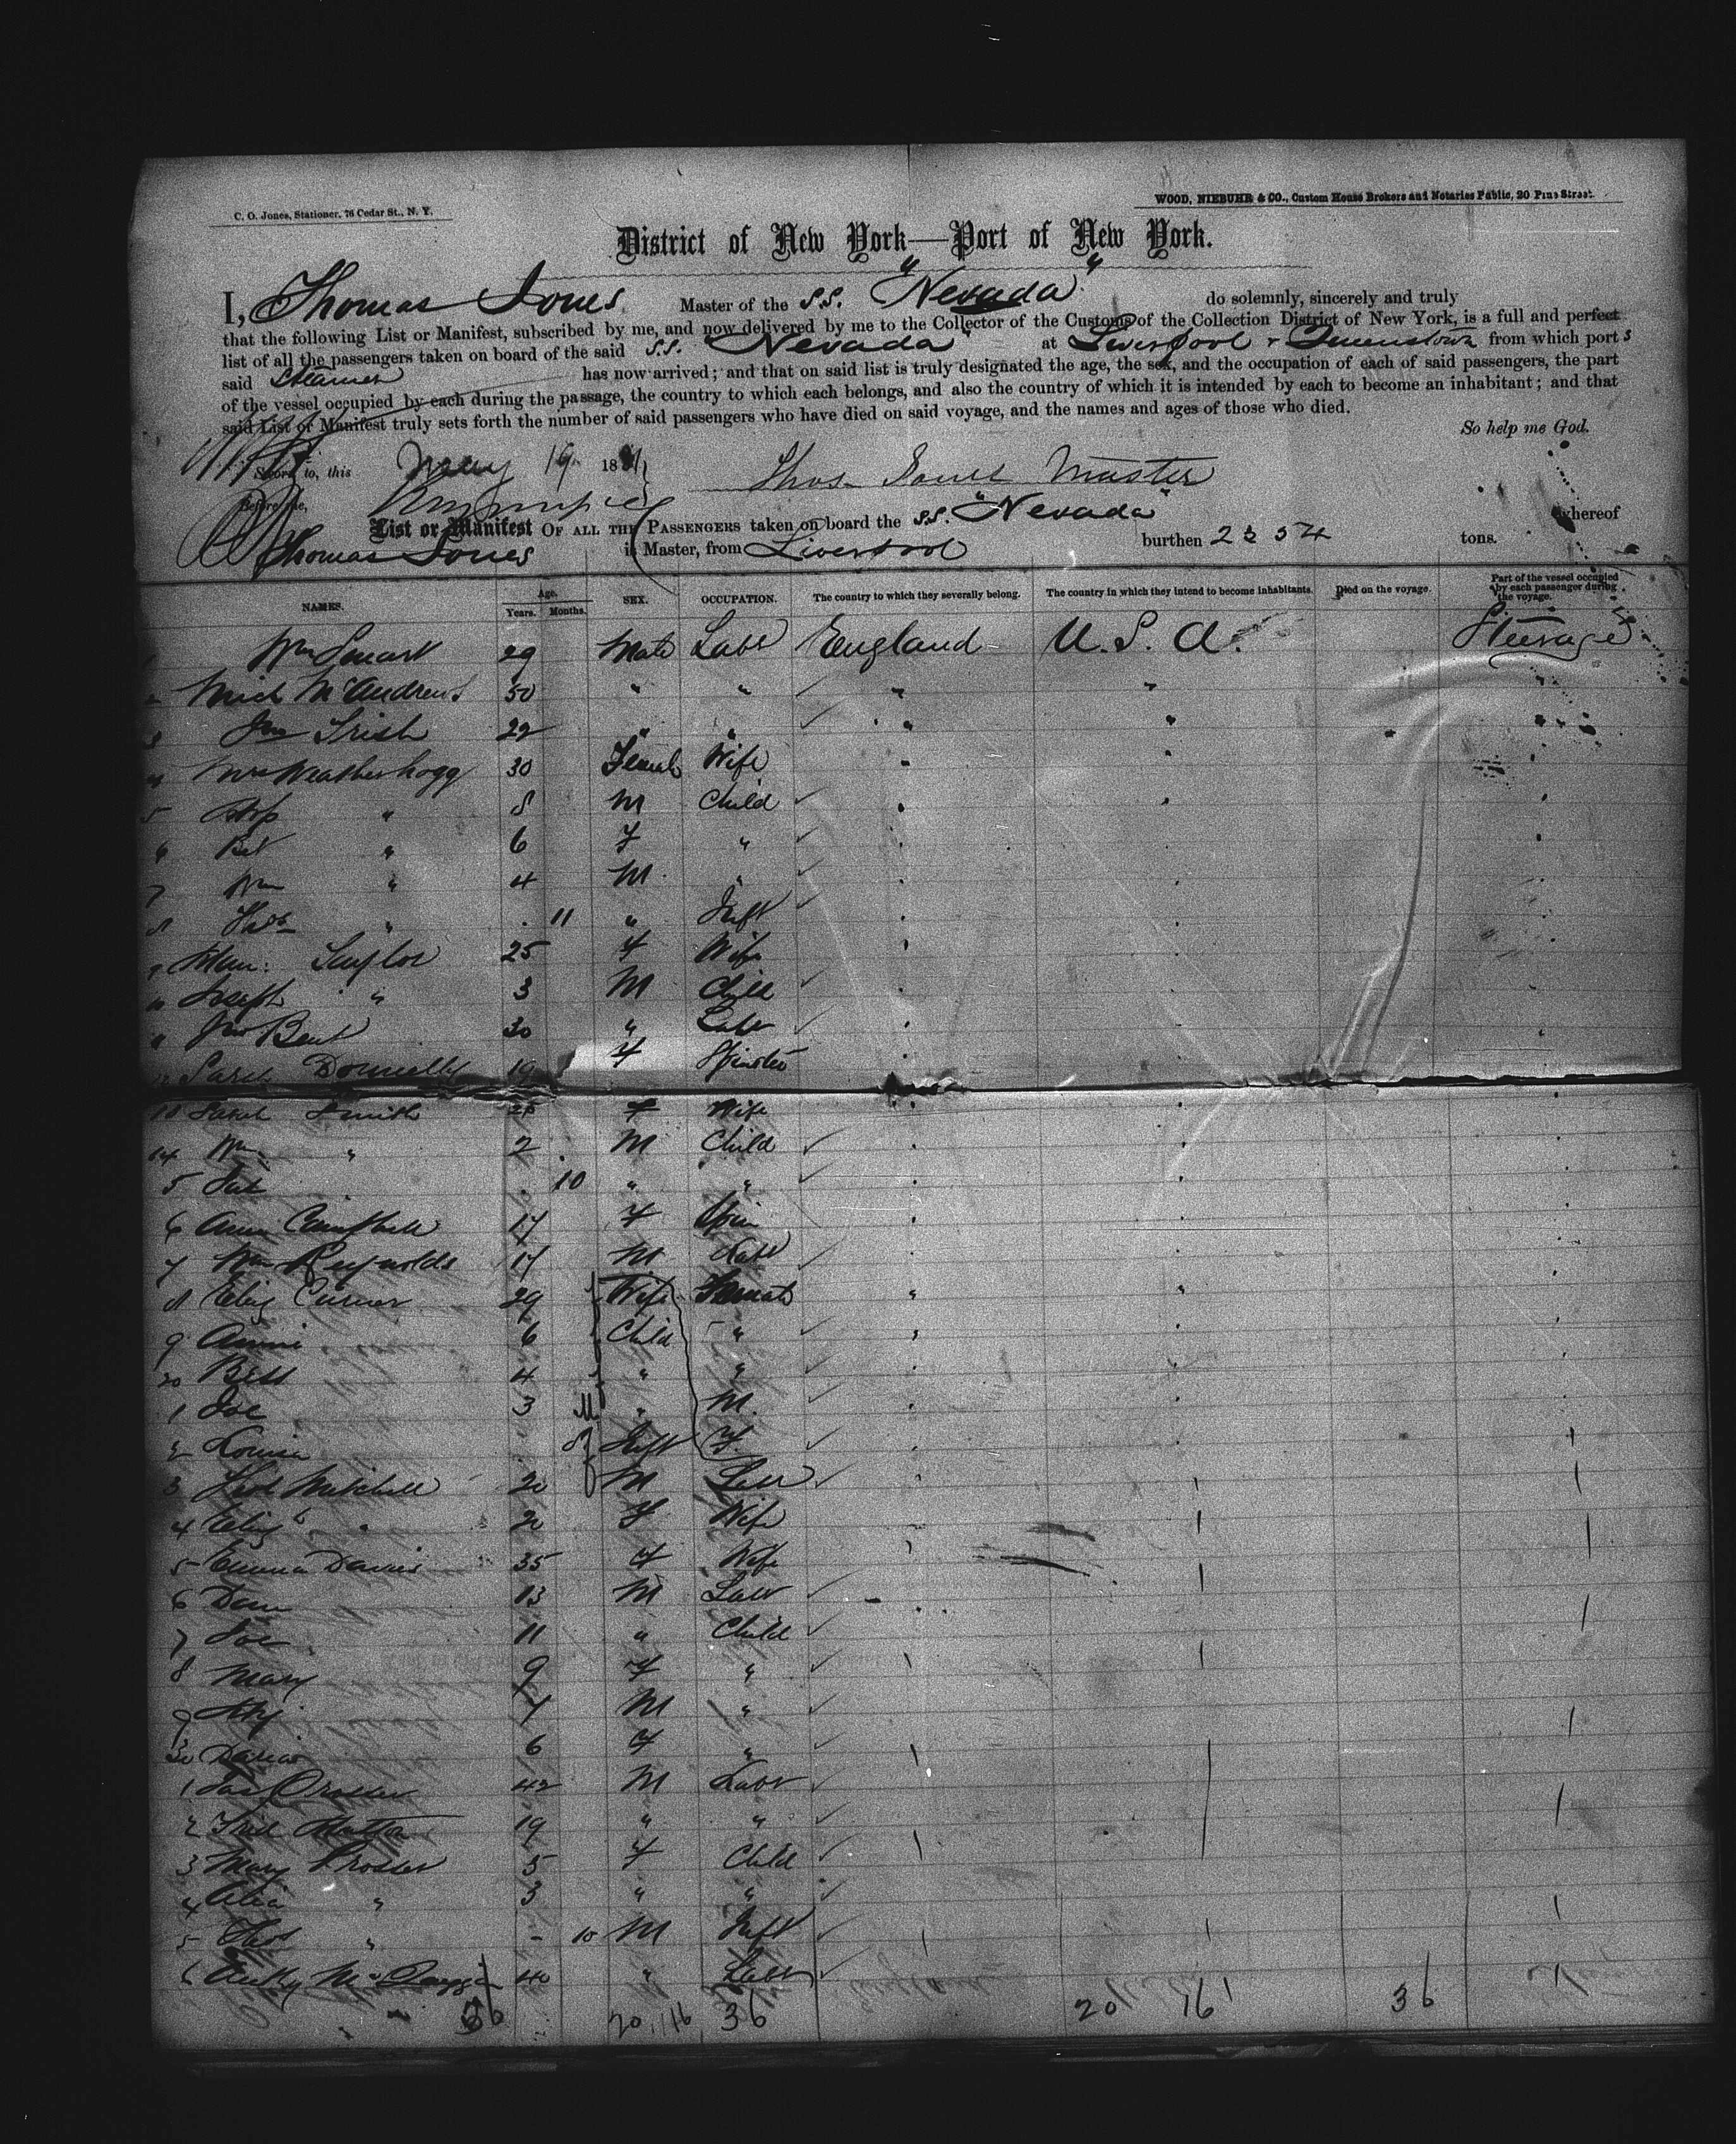 C. O. Jones, Stationer, 76 Cedar St., N. Y.
WOOD, NIEBUHR & CO., Custom House Brokers and Notaries Public, 20 Pine Street.
District of New York—Port of New York.
I, Thomas Jones Master of the S.S. "Nevada" do solemnly, sincerely and truly
that the following List or Manifest, subscribed by me, and now delivered by me to the Collector of the Customs of the Collection District of New York, is a full and perfect
list of all the passengers taken on board of the said S.S. "Nevada" at Liverpool & Queenstown from which port s
said Steamer has now arrived; and that on said list is truly designated the age, the sex, and the occupation of each of said passengers, the part
of the vessel occupied by each during the passage, the country to which each belongs, and also the country of which it is intended by each to become an inhabitant; and that
said List or Manifest truly sets forth the number of said passengers who have died on said voyage, and the names and ages of those who died.
So help me God.
Sworn to, this May 19 1881
Thos Jones Master
Before me,
List or Manifest OF ALL THE PASSENGERS taken on board the S.S. "Nevada" whereof
Thomas Jones is Master, from Liverpool burthen tons.
NAMES. Age. Years. Months. SEX. OCCUPATION. The country to which they severally belong. The country in which they intend to become inhabitants. Died on the voyage. Part of the vessel occupied by each passenger during the voyage.
1 Wm Smart 29 Male Labr England U.S.A. Steerage
2 Mich McAndrew 50 " " " "
3 Jno Irish 22 " " " "
4 Mrs Weatherhogg 30 Female Wife " "
5 " 8 M Child " "
6 " 6 F "
7 Wm " 4 M "
8 " 11 " Inft
9 Taylor 25 F Wife
10 Joseph " 3 M Child
11 Jno Bent 30 " Labr
12 Sarah Donnelly 19 F Spinster
13 Sarah Smith F Wife
14 Wm " 2 M Child
5 10 " "
6 Ann Campbell 17 F Spin
7 Wm Reynolds 17 M Labr
8 Eliz Curner 29 Wife Female " "
9 Annie 6 Child "
20 4 " "
1 Joe 3 " M
2 Louisa 8 Inft F
3 Mitchell 20 M Labr
4 Eliz " 20 F Wife
5 Emma Davies 35 F Wife
6 Dan 13 M Labr
7 Joe 11 " Child
8 Mary 9 F "
9 7 M "
30 6 F "
1 42 M Labr
2 19 " "
3 Mary Prosser 5 F Child
4 " 3 " "
5 Thos " - 10 M Inft
6 40 " Labr
36 20 16 36 20 16 36